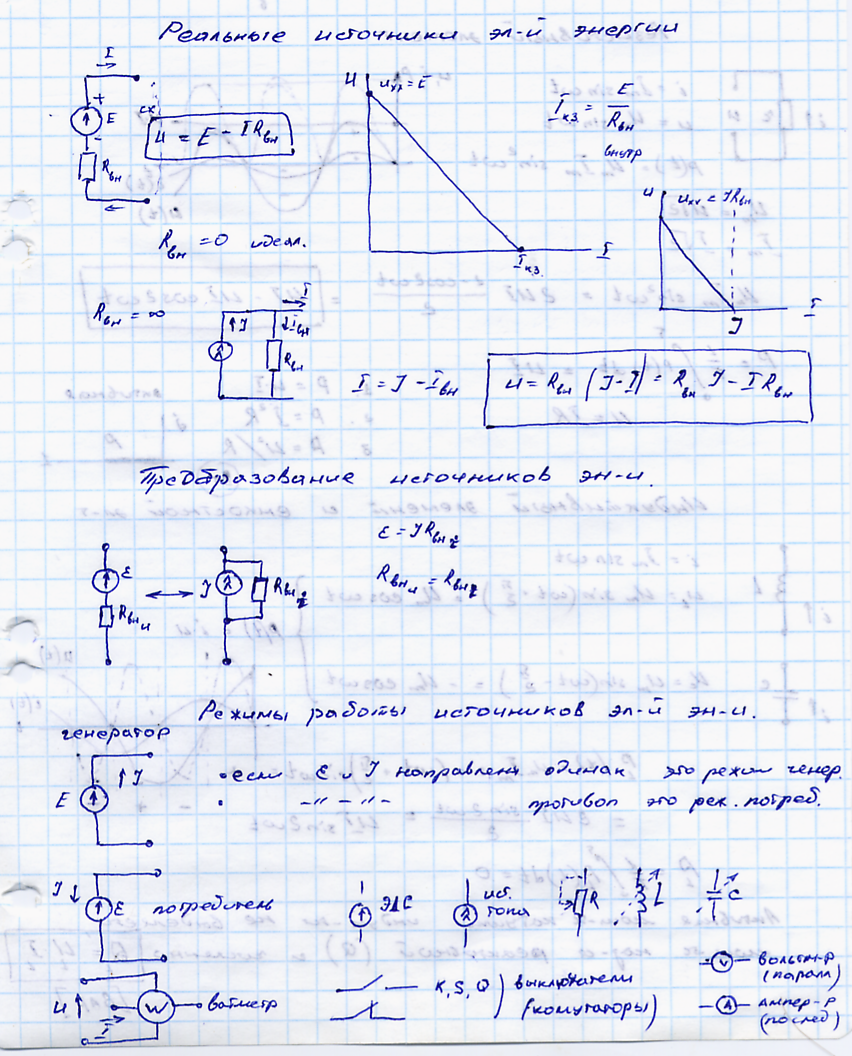 Реальные источники эл-й энергии
I
+
E
-
Rвн
сх
U = E - IRвн
U
Uхх = E
I
Iкз
Iкз = E / Rвн
внутр
Rвн = 0 идеал.
U
Uхх = JRвн
I
J
Rвн = ∞
J
I
Iвн
Rвн
I = J - Iвн
U = Rвн (J - I) = Rвн J - I Rвн
Преобразование источников эн-и.
E = JRвн
Rвн = Rвн
E
Rвн
J
Rвн
Режимы работы источников эл-й эн-и.
генератор
J
E
• если E и J направлен одинак это режим генер.
• -"- -"- противоп это реж. потреб.
J
E
потребитель
ЭДС
ист. тока
R
L
C
U
I
W
ватметр
K, S, Q
выключатели
(комутаторы)
V
вольтм-р
(парал)
A
ампер-р
(послед)